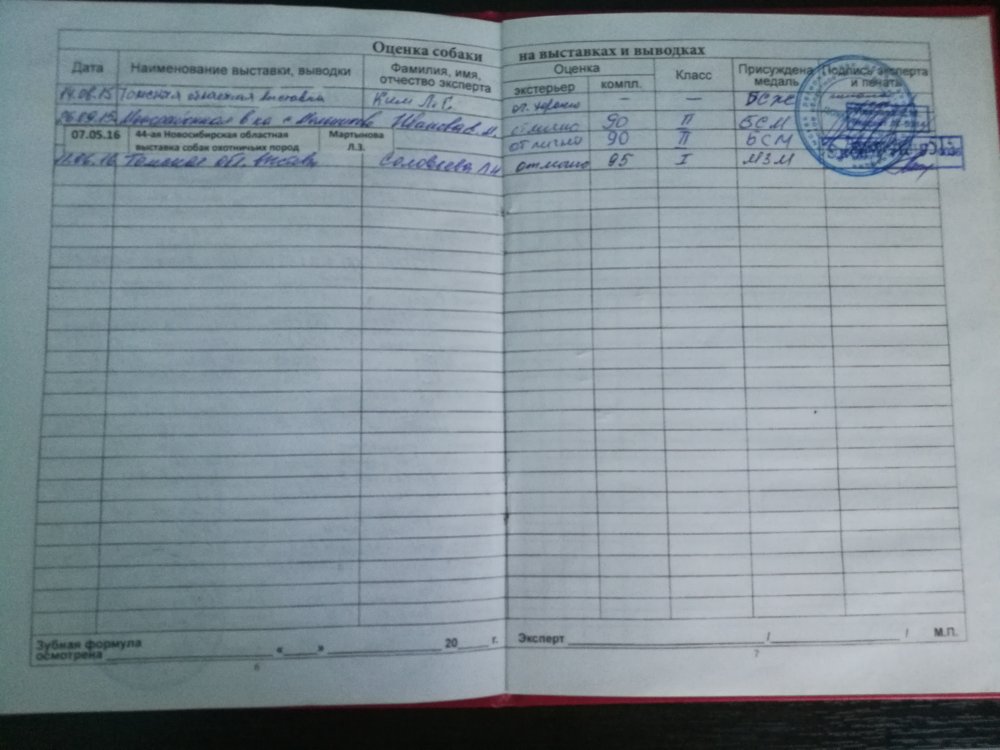 Оценка собаки на выставках и выводках
Дата Наименование выставки, выводки Фамилия, имя, отчество эксперта Оценка Класс Присуждена медаль Подпись эксперта и печать
экстерьер компл.
14.06.15 Томская областная выставка Ким Л.Г. оч. хорошо — — БСХС
26.09.15 Межрайонная в-ка с. Иванова М. отлично 90 II БСМ
07.05.16 44-ая Новосибирская областная выставка собак охотничьих пород Мартынова Л.З. отлично 90 II БСМ
11.06.16 Томская обл. выставка Соловьева Л.Н. отлично 95 I МЗМ
Зубная формула осмотрена « » 20 г. Эксперт / / М.П.
6 7